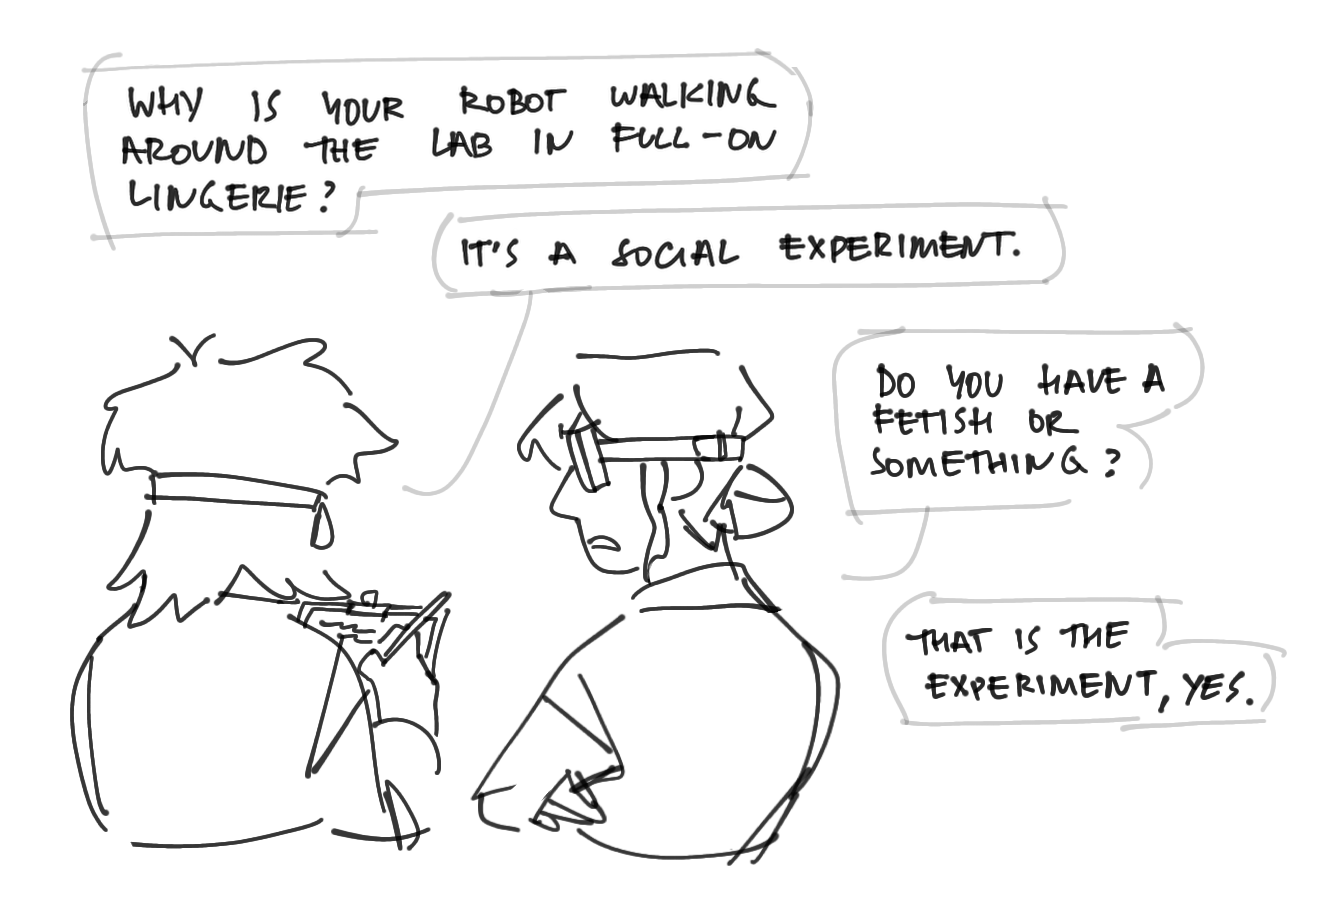 WHY IS YOUR ROBOT WALKING
AROUND THE LAB IN FULL-ON
LINGERIE?
IT'S A SOCIAL EXPERIMENT.
DO YOU HAVE A
FETISH OR
SOMETHING?
THAT IS THE
EXPERIMENT, YES.